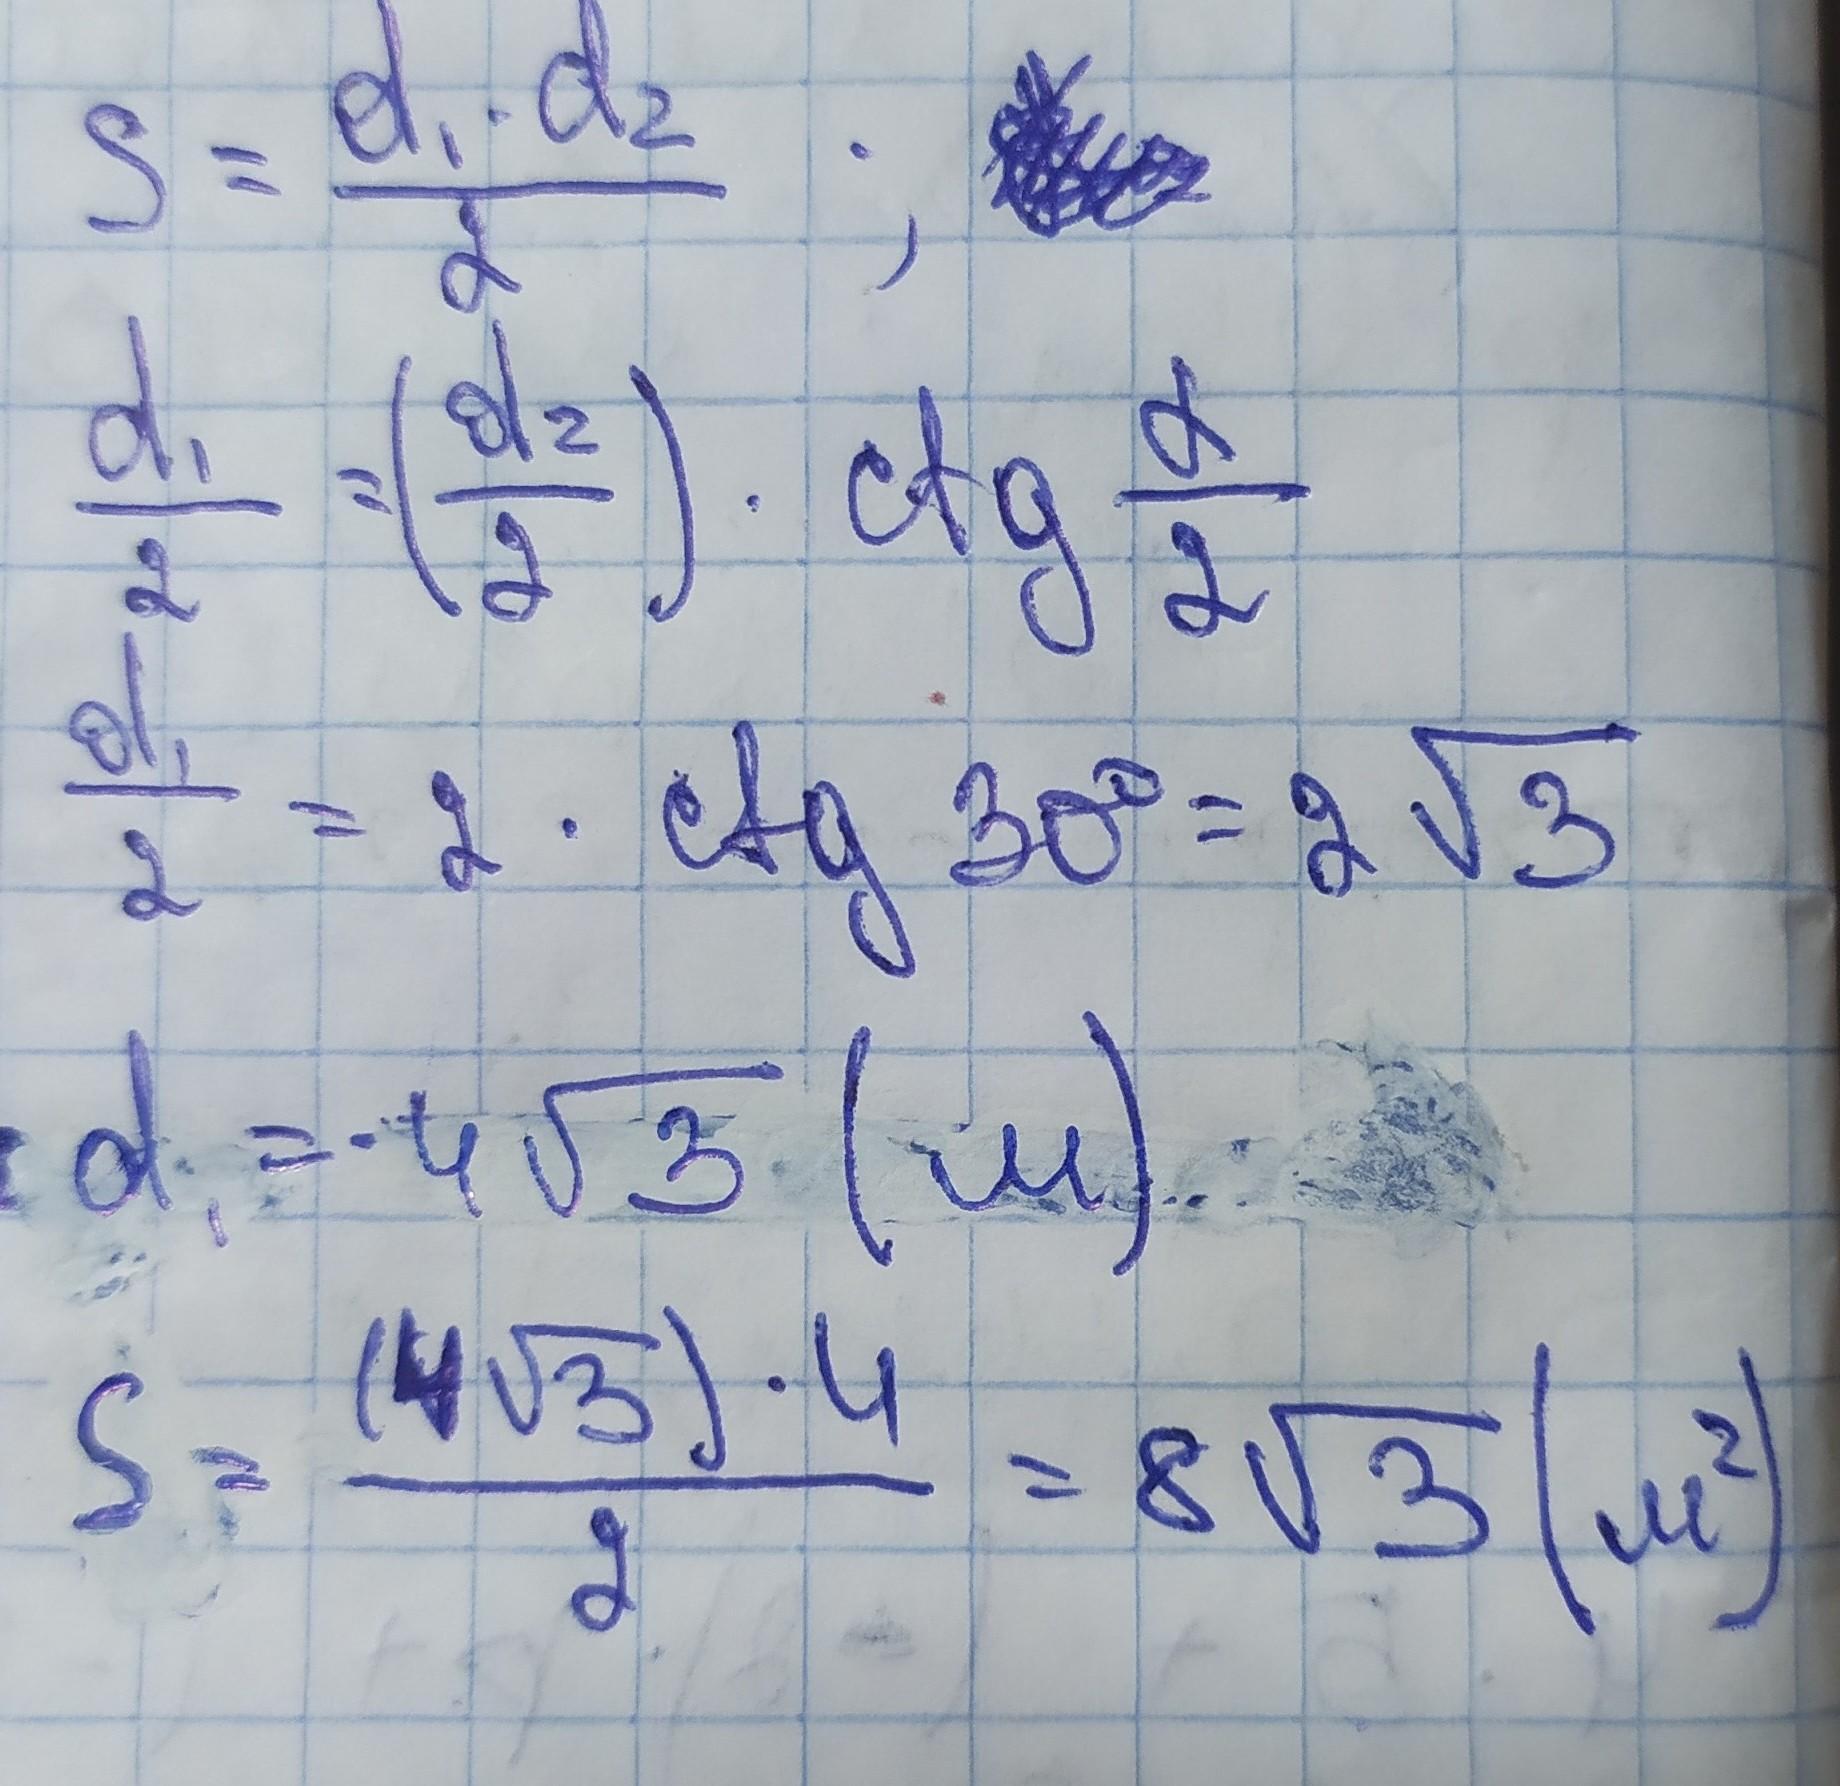 S = d₁ · d₂ / 2 ;
d₁ / 2 = (d₂ / 2) · ctg α / 2
d₁ / 2 = 2 · ctg 30° = 2√3
d₁ = 4√3 (м)
S = (4√3) · 4 / 2 = 8√3 (м²)